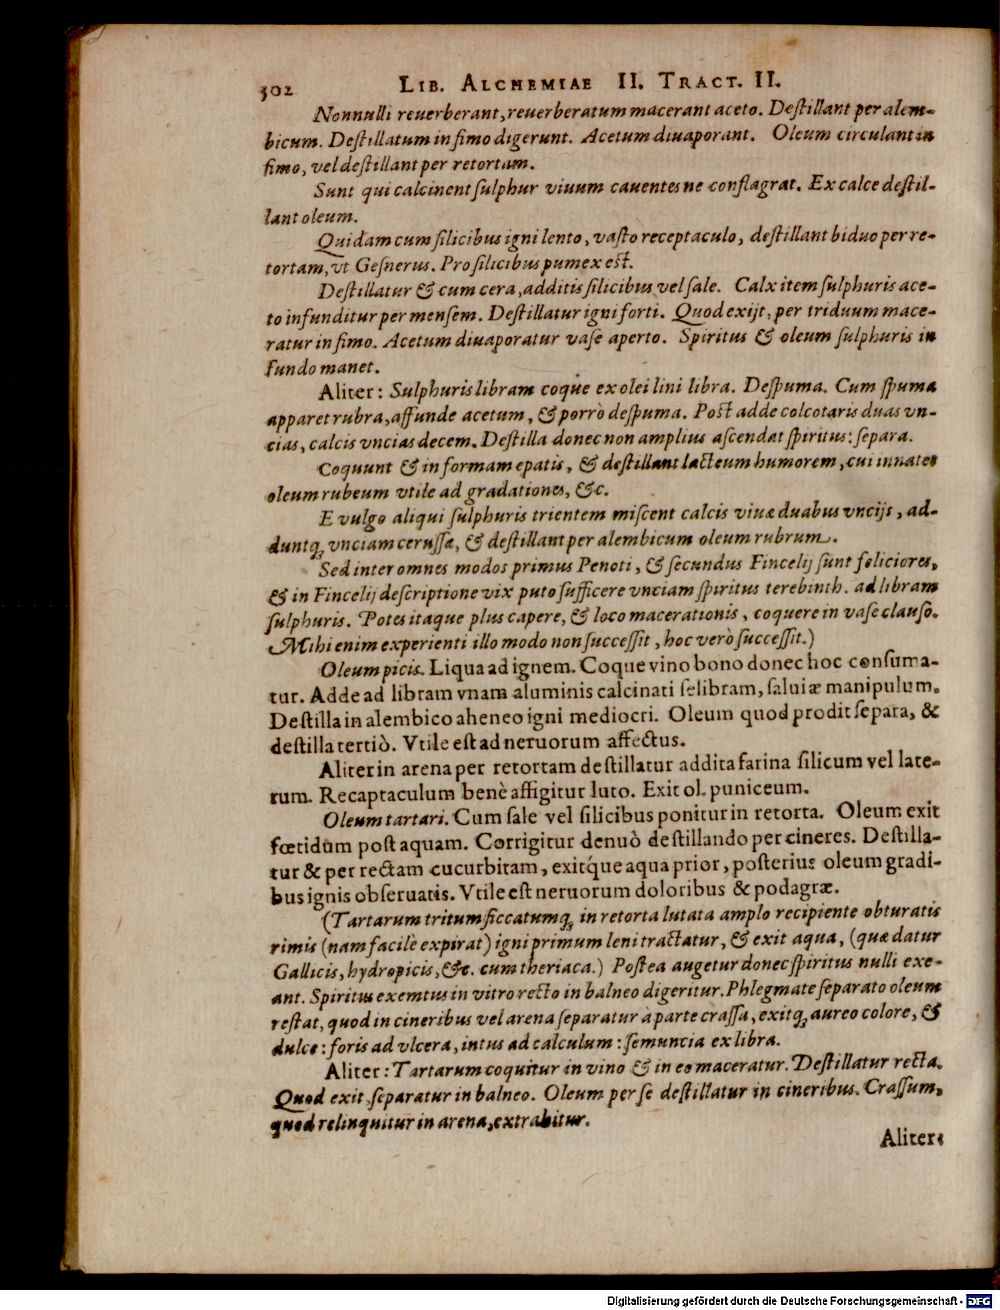 302 LIB. ALCHEMIAE II. TRACT. II.
Nonnulli reuerberant, reuerberatum macerant aceto. Deſtillant per alem-
bicum. Deſtillatum in fimo digerunt. Acetum diuaporant. Oleum circulant in
fimo, vel deſtillant per retortam.
Sunt qui calcinent ſulphur viuum cauentes ne conflagrat. Ex calce deſtil-
lant oleum.
Quidam cum ſilicibus igni lento, vaſto receptaculo, deſtillant biduo per re-
tortam, vt Geſnerus. Pro ſilicibus pumex eſt.
Deſtillatur & cum cera, additis ſilicibus vel ſale. Calx item ſulphuris ace-
to infunditur per menſem. Deſtillatur igni forti. Quod exijt, per triduum mace-
ratur in fimo. Acetum diuaporatur vaſe aperto. Spiritus & oleum ſulphuris in
fundo manet.
Aliter: Sulphuris libram coque ex olei lini libra. Deſpuma. Cum ſpuma
apparet rubra, affunde acetum, & porrò deſpuma. Poſt adde colcotaris duas vn-
cias, calcis vncias decem. Deſtilla donec non amplius aſcendat ſpiritus: ſepara.
Coquunt & in formam epatis, & deſtillant lacteum humorem, cui innatet
oleum rubeum vtile ad gradationes, &c.
E vulgo aliqui ſulphuris trientem miſcent calcis viuæ duabus vncijs, ad-
duntq́; vnciam ceruſſæ, & deſtillant per alembicum oleum rubrum.
Sed inter omnes modos primus Penoti, & ſecundus Fincelij ſunt feliciores,
& in Fincelij deſcriptione vix puto ſufficere vnciam ſpiritus terebinth. ad libram
ſulphuris. Potes itaque plus capere, & loco macerationis, coquere in vaſe clauſo.
Mihi enim experienti illo modo non ſucceſſit, hoc verò ſucceſſit.)
Oleum picis. Liqua ad ignem. Coque vino bono donec hoc conſuma-
tur. Adde ad libram vnam aluminis calcinati ſelibram, ſaluiæ manipulum.
Deſtilla in alembico aheneo igni mediocri. Oleum quod prodit ſepara, &
deſtilla tertiò. Vtile eſt ad neruorum affectus.
Aliter in arena per retortam deſtillatur addita farina ſilicum vel late-
rum. Recaptaculum benè affigitur luto. Exit ol. puniceum.
Oleum tartari. Cum ſale vel ſilicibus ponitur in retorta. Oleum exit
fœtidum poſt aquam. Corrigitur denuò deſtillando per cineres. Deſtilla-
tur & per rectam cucurbitam, exit́que aqua prior, poſterius oleum gradi-
bus ignis obſeruatis. Vtile eſt neruorum doloribus & podagræ.
(Tartarum tritum ſiccatumq́; in retorta lutata amplo recipiente obturatis
rimis (nam facilè expirat) igni primum leni tractatur, & exit aqua, (quæ datur
Gallicis, hydropicis, &c. cum theriaca.) Poſtea augetur donec ſpiritus nulli exe-
ant. Spiritus exemtus in vitro recto in balneo digeritur. Phlegmate ſeparato oleum
reſtat, quod in cineribus vel arena ſeparatur à parte craſſa, exitq́; aureo colore, &
dulce: foris ad vlcera, intus ad calculum: ſemuncia ex libra.
Aliter: Tartarum coquitur in vino & in eo maceratur. Deſtillatur recta.
Quod exit ſeparatur in balneo. Oleum per ſe deſtillatur in cineribus. Craſſum,
quod relinquitur in arena, extrabitur.
Aliter:
Digitalisierung gefördert durch die Deutsche Forschungsgemeinschaft - DFG